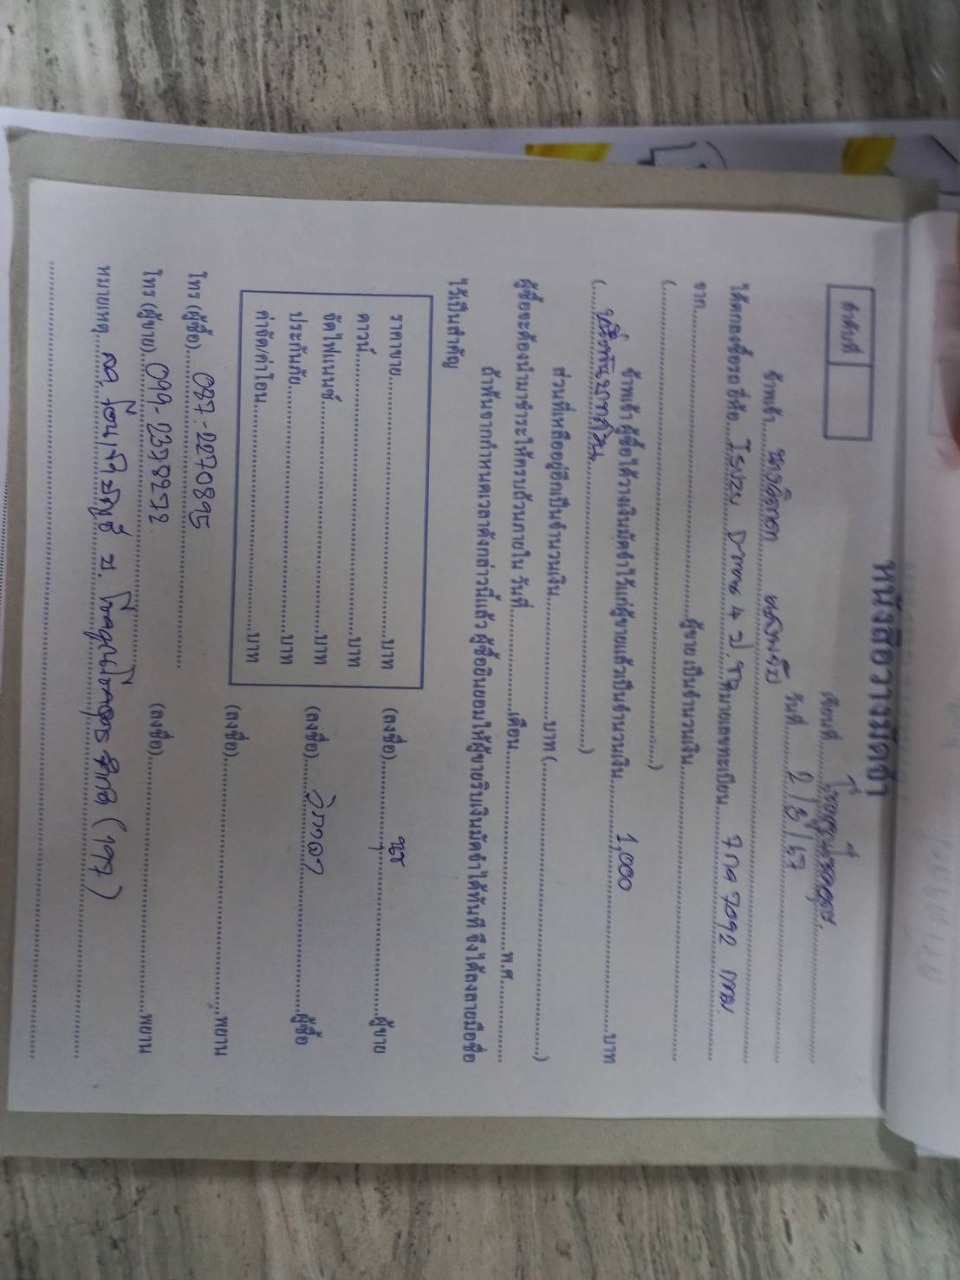 หนังสือวางมัดจำ
ลำดับที่
เขียนที่
วันที่ 2/8/67
ข้าพเจ้า
ได้ตกลงซื้อรถ ยี่ห้อ Isuzu Dmax 4 ป. หมายเลขทะเบียน 7กฮ 7092 กทม
จาก ผู้ขาย เป็นจำนวนเงิน
( )
ข้าพเจ้า ผู้ซื้อได้วางเงินมัดจำไว้แก่ผู้ขายแล้วเป็นจำนวนเงิน 1,000 บาท
(หนึ่งพันบาทถ้วน)
ส่วนที่เหลืออยู่อีกเป็นจำนวนเงิน บาท ( )
ผู้ซื้อจะต้องนำมาชำระให้ครบถ้วนภายใน วันที่ เดือน พ.ศ.
ถ้าพ้นจากกำหนดเวลาดังกล่าวนี้แล้ว ผู้ซื้อยินยอมให้ผู้ขายริบเงินมัดจำได้ทันที จึงได้ลงลายมือชื่อ
ไว้เป็นสำคัญ
ราคาขาย บาท
ดาวน์ บาท
จัดไฟแนนซ์ บาท
ประกันภัย บาท
ค่าจัด/ค่าโอน บาท
(ลงชื่อ) นุช ผู้ขาย
(ลงชื่อ) วิภาดา ผู้ซื้อ
(ลงชื่อ) พยาน
(ลงชื่อ) พยาน
โทร (ผู้ซื้อ) 087-2270895
โทร (ผู้ขาย) 099-2398272
หมายเหตุ